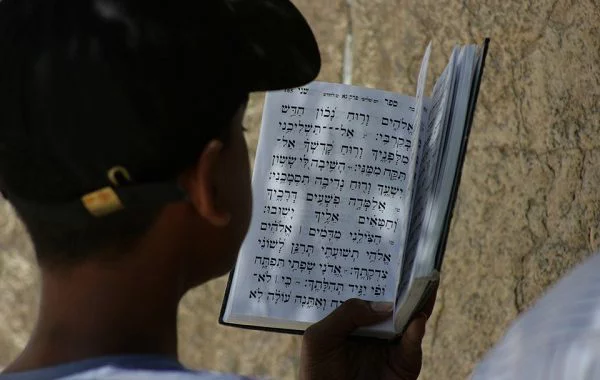 ספר פרק נא שני
אֱלֹהִים וְרוּחַ נָכוֹן חַדֵּשׁ
בְּקִרְבִּי: אַל־תַּשְׁלִיכֵנִי
מִלְּפָנֶיךָ וְרוּחַ קָדְשְׁךָ אַל־
תִּקַּח מִמֶּנִּי: הָשִׁיבָה לִּי שְׂשׂוֹן
יִשְׁעֶךָ וְרוּחַ נְדִיבָה תִסְמְכֵנִי:
אֲלַמְּדָה פֹשְׁעִים דְּרָכֶיךָ
וְחַטָּאִים אֵלֶיךָ יָשׁוּבוּ:
הַצִּילֵנִי מִדָּמִים | אֱלֹהִים
אֱלֹהֵי תְּשׁוּעָתִי תְּרַנֵּן לְשׁוֹנִי
צִדְקָתֶךָ: אֲדֹנָי שְׂפָתַי תִּפְתָּח
וּפִי יַגִּיד תְּהִלָּתֶךָ: כִּי | לֹא־
וְאֶתֵּנָה עוֹלָה לֹא